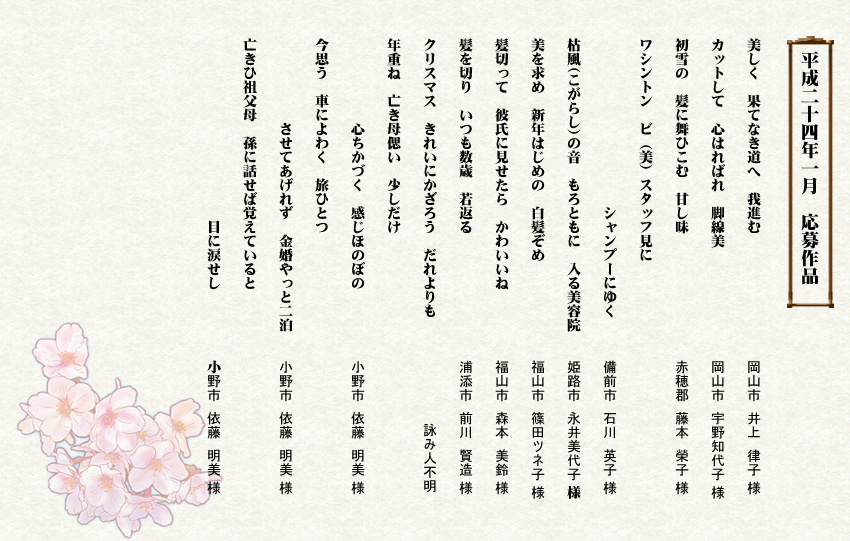 平成二十四年一月　応募作品
美しく　果てなき道へ　我進む
岡山市　井上　律子　様
カットして　心はればれ　脚線美
岡山市　宇野知代子　様
初雪の　髪に舞ひこむ　甘し味
赤穂郡　藤本　榮子　様
ワシントン　ビ（美）スタッフ見に
シャンプーにゆく
備前市　石川　英子　様
枯風（こがらし）の音　もろともに　入る美容院
姫路市　永井美代子　様
美を求め　新年はじめの　白髪ぞめ
福山市　篠田ツネ子　様
髪切って　彼氏に見せたら　かわいいね
福山市　森本　美鈴　様
髪を切り　いつも数歳　若返る
浦添市　前川　賢造　様
クリスマス　きれいにかざろう　だれよりも
詠み人不明
年重ね　亡き母偲い　少しだけ
心ちかづく　感じほのぼの
小野市　依藤　明美　様
今思う　車によわく　旅ひとつ
させてあげれず　金婚やっと二泊
小野市　依藤　明美　様
亡きひ祖父母　孫に話せば覚えていると
目に涙せし
小野市　依藤　明美　様